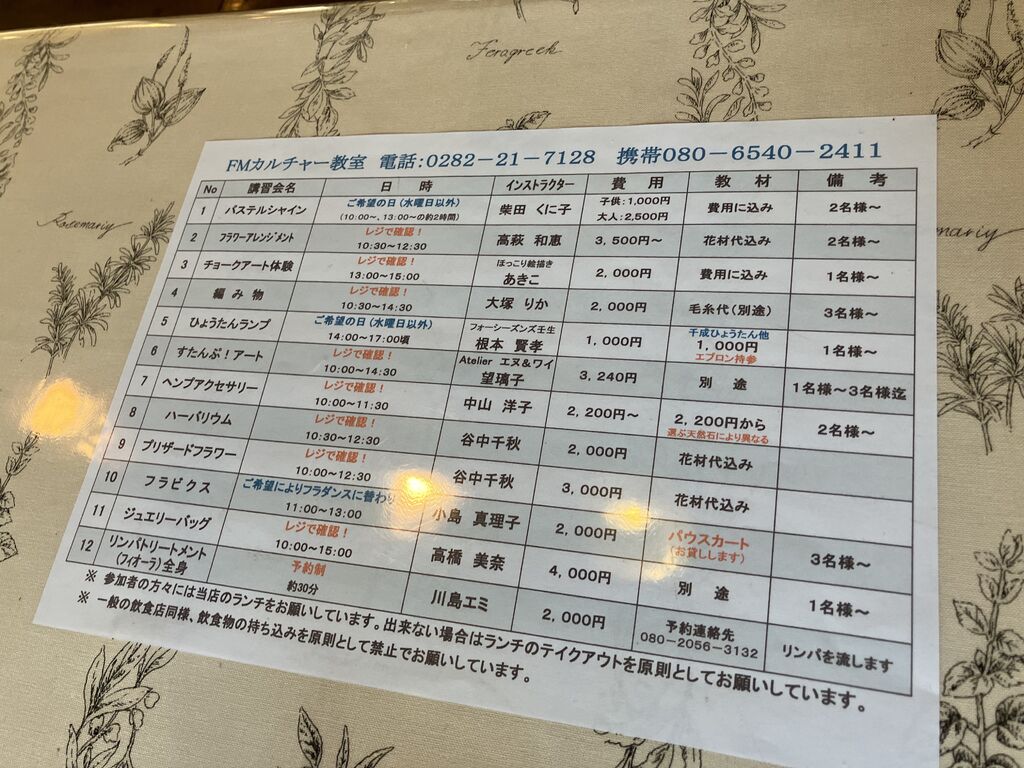 Feragreek
Rosemariy
mariy
FMカルチャー教室 電話:0282-21-7128 携帯080-6540-2411
No 講習会名 日 時 インストラクター 費 用 教 材 備 考
1 パステルシャイン ご希望の日(水曜日以外) (10:00~、13:00~の約2時間) 柴田 くに子 子供:1,000円 大人:2,500円 費用に込み 2名様~
2 フラワーアレンジメント レジで確認! 10:30~12:30 高萩 和恵 3,500円~ 花材代込み 2名様~
3 チョークアート体験 レジで確認! 13:00~15:00 ほっこり絵描き あきこ 2,000円 費用に込み 1名様~
4 編み物 レジで確認! 10:30~14:30 大塚 りか 2,000円 毛糸代(別途) 3名様~
5 ひょうたんランプ ご希望の日(水曜日以外) 14:00~17:00頃 フォーシーズンズ壬生 根本 賢孝 1,000円 千成ひょうたん他 1,000円 エプロン持参 1名様~
6 すたんぷ!アート レジで確認! 10:00~14:30 Atelier エヌ&ワイ 望璃子 3,240円 別 途 1名様~3名様迄
7 ヘンプアクセサリー レジで確認! 10:00~11:30 中山 洋子 2,200円~ 2,200円から 選ぶ天然石により異なる 2名様~
8 ハーバリウム レジで確認! 10:30~12:30 谷中千秋 2,000円 花材代込み
9 プリザードフラワー レジで確認! 10:00~12:30 谷中千秋 3,000円 花材代込み
10 フラビクス ご希望によりフラダンスに替わり 11:00~13:00 小島 真理子 2,000円 パウスカート (お貸しします) 3名様~
11 ジュエリーバッグ レジで確認! 10:00~15:00 高橋 美奈 4,000円 別 途 1名様~
12 リンパトリートメント (フィオーラ)全身 予約制 約30分 川島エミ 2,000円 予約連絡先 080-2056-3132 リンパを流します
※ 参加者の方々には当店のランチをお願いしています。出来ない場合はランチのテイクアウトを原則としてお願いしています。
※ 一般の飲食店同様、飲食物の持ち込みを原則として禁止でお願いしています。